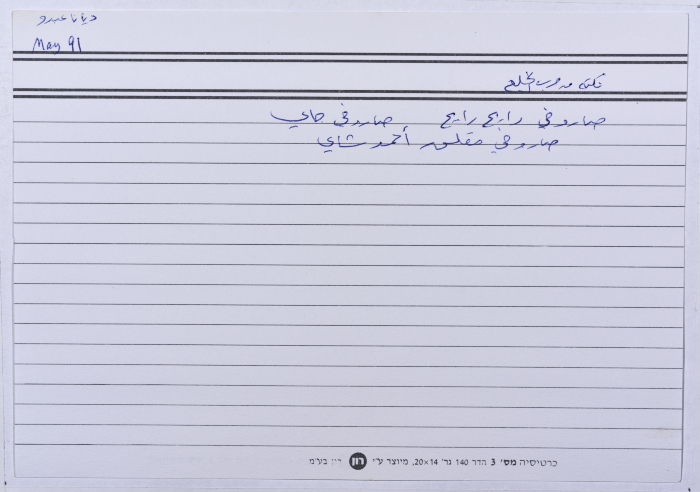 ديانا عبدو
May 91
نكتة من حرب الخليج
صاروخ رايح رايح صاروخ جاي
صاروخ مقلس أحمد شاي
כרטיסיה מס' 3 הדר 140 גר' 20×14, מיוצר ע"י רון רון בע"מ